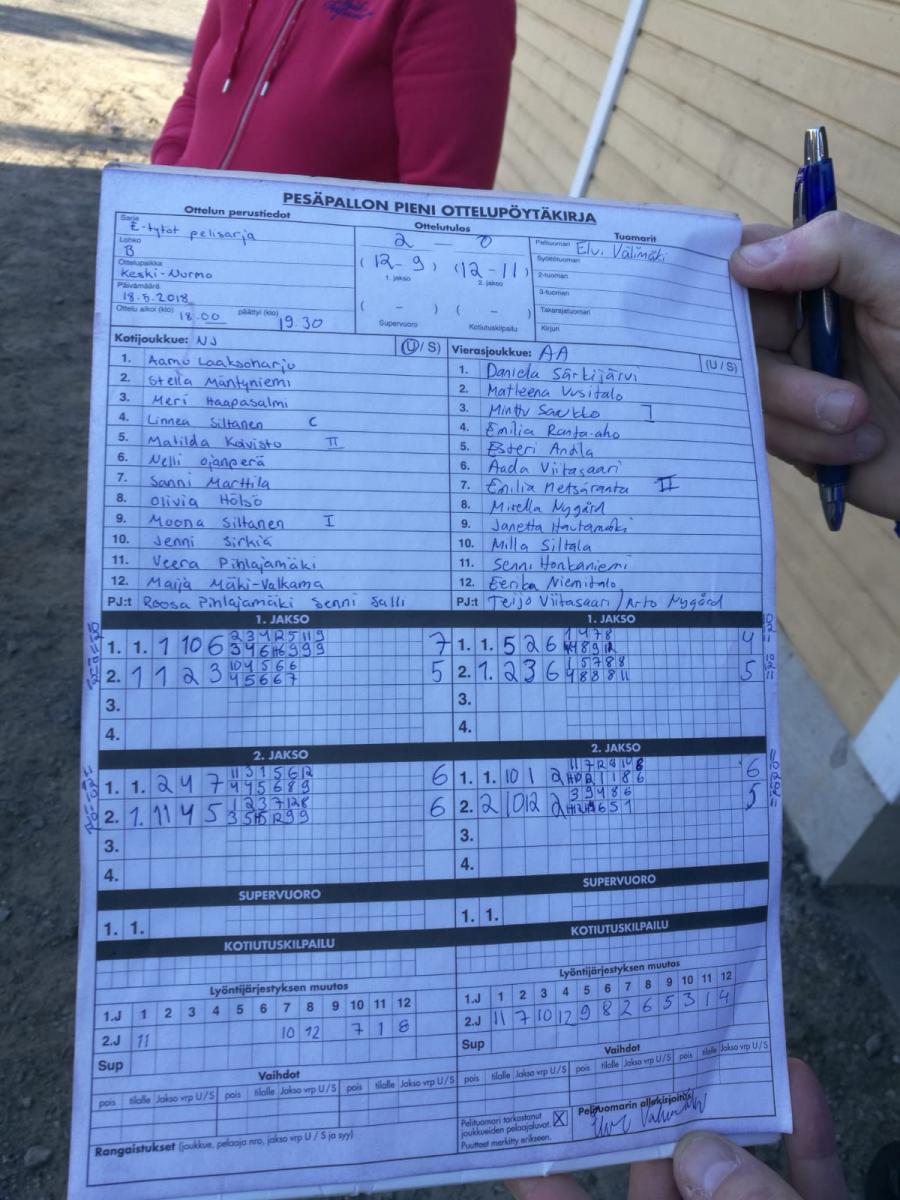 PESÄPALLON PIENI OTTELUPÖYTÄKIRJA
Ottelun perustiedot
Sarja
E-tytöt pelisarja
Lohko
B
Ottelupaikka
Keski-Nurmo
Päivämäärä
18.5.2018
Ottelu alkoi (klo) 18.00 päättyi (klo) 19.30
Ottelutulos
2 - 0
(12-9) (12-11)
1. jakso 2. jakso
( - ) ( - )
Supervuoro Kotiutuskilpailu
Tuomarit
Pelituomari Elvi Välimäki
Syöttötuomari
2-tuomari
3-tuomari
Takarajatuomari
Kirjuri
Kotijoukkue: NJ (U / S)
1. Aamu Laaksoharju
2. Stella Mäntyniemi
3. Meri Haapasalmi
4. Linnea Siltanen C
5. Matilda Koivisto II
6. Nelli Ojanperä
7. Sanni Marttila
8. Olivia Hölsö
9. Moona Siltanen I
10. Jenni Sirkiä
11. Veera Pihlajamäki
12. Maija Mäki-Valkama
PJ:t Roosa Pihlajamäki Senni Salli
Vierasjoukkue: AA (U / S)
1. Daniela Särkijärvi
2. Matleena Uusitalo
3. Minttu Saukko I
4. Emilia Ranta-aho
5. Esteri Antila
6. Aada Viitasaari
7. Emilia Metsäranta II
8. Mirella Nygård
9. Janetta Hautamäki
10. Milla Siltala
11. Senni Honkaniemi
12. Eerika Niemitalo
PJ:t Teijo Viitasaari / Arto Nygård
1. JAKSO
1. 1. 1 10 6 7
2. 1 1 2 3 5
3.
4.
1. JAKSO
1. 1. 5 2 6 4
2. 1. 2 3 6 5
3.
4.
2. JAKSO
1. 1. 2 4 7 6
2. 1. 11 4 5 6
3.
4.
2. JAKSO
1. 1. 10 1 2 6
2. 2 10 12 2 5
3.
4.
SUPERVUORO
1. 1.
SUPERVUORO
1. 1.
KOTIUTUSKILPAILU
KOTIUTUSKILPAILU
Lyöntijärjestyksen muutos
1.J 1 2 3 4 5 6 7 8 9 10 11 12
2.J 11 10 12 7 1 8
Sup
Lyöntijärjestyksen muutos
1.J 1 2 3 4 5 6 7 8 9 10 11 12
2.J 11 7 10 12 9 8 2 6 5 3 1 4
Sup
Vaihdot
pois tilalle Jakso vrp U/S pois tilalle Jakso vrp U/S pois tilalle Jakso vrp U/S
Vaihdot
pois tilalle Jakso vrp U/S pois tilalle Jakso vrp U/S pois tilalle Jakso vrp U/S
Rangaistukset (joukkue, pelaaja nro, jakso vrp U / S ja syy)
Pelituomari tarkastanut
joukkueiden pelaajaluvat. X
Puutteet merkitty erikseen.
Pelituomarin allekirjoitus